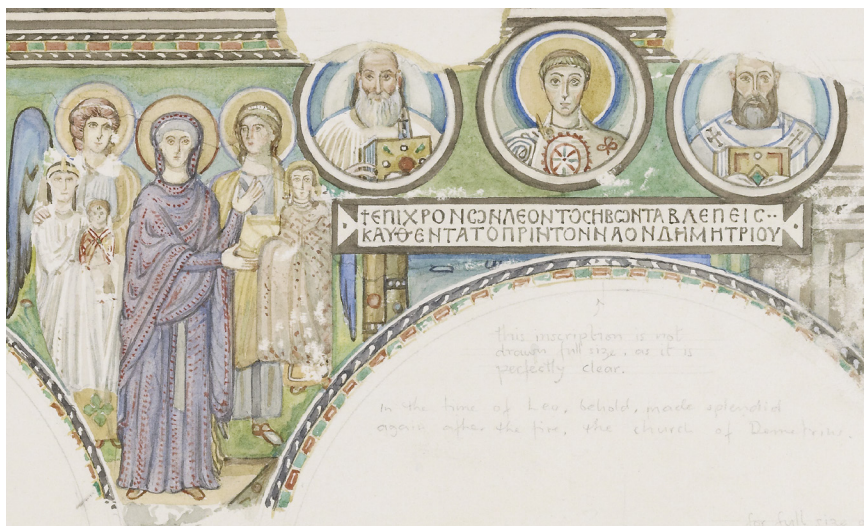 †ΕΠΙΧΡΟΝωΝΛΕΟΝΤΟCΗΒωΝΤΑΒΛΕΠΕΙC··
ΚΑΥΘΕΝΤΑΤΟΠΡΙΝΤΟΝΝΑΟΝΔΗΜΗΤΡΙΟΥ
this inscription is not
drawn full size, as it is
perfectly clear.
In the time of Leo, behold, made splendid
again after the fire, the church of Demetrius.
for full size